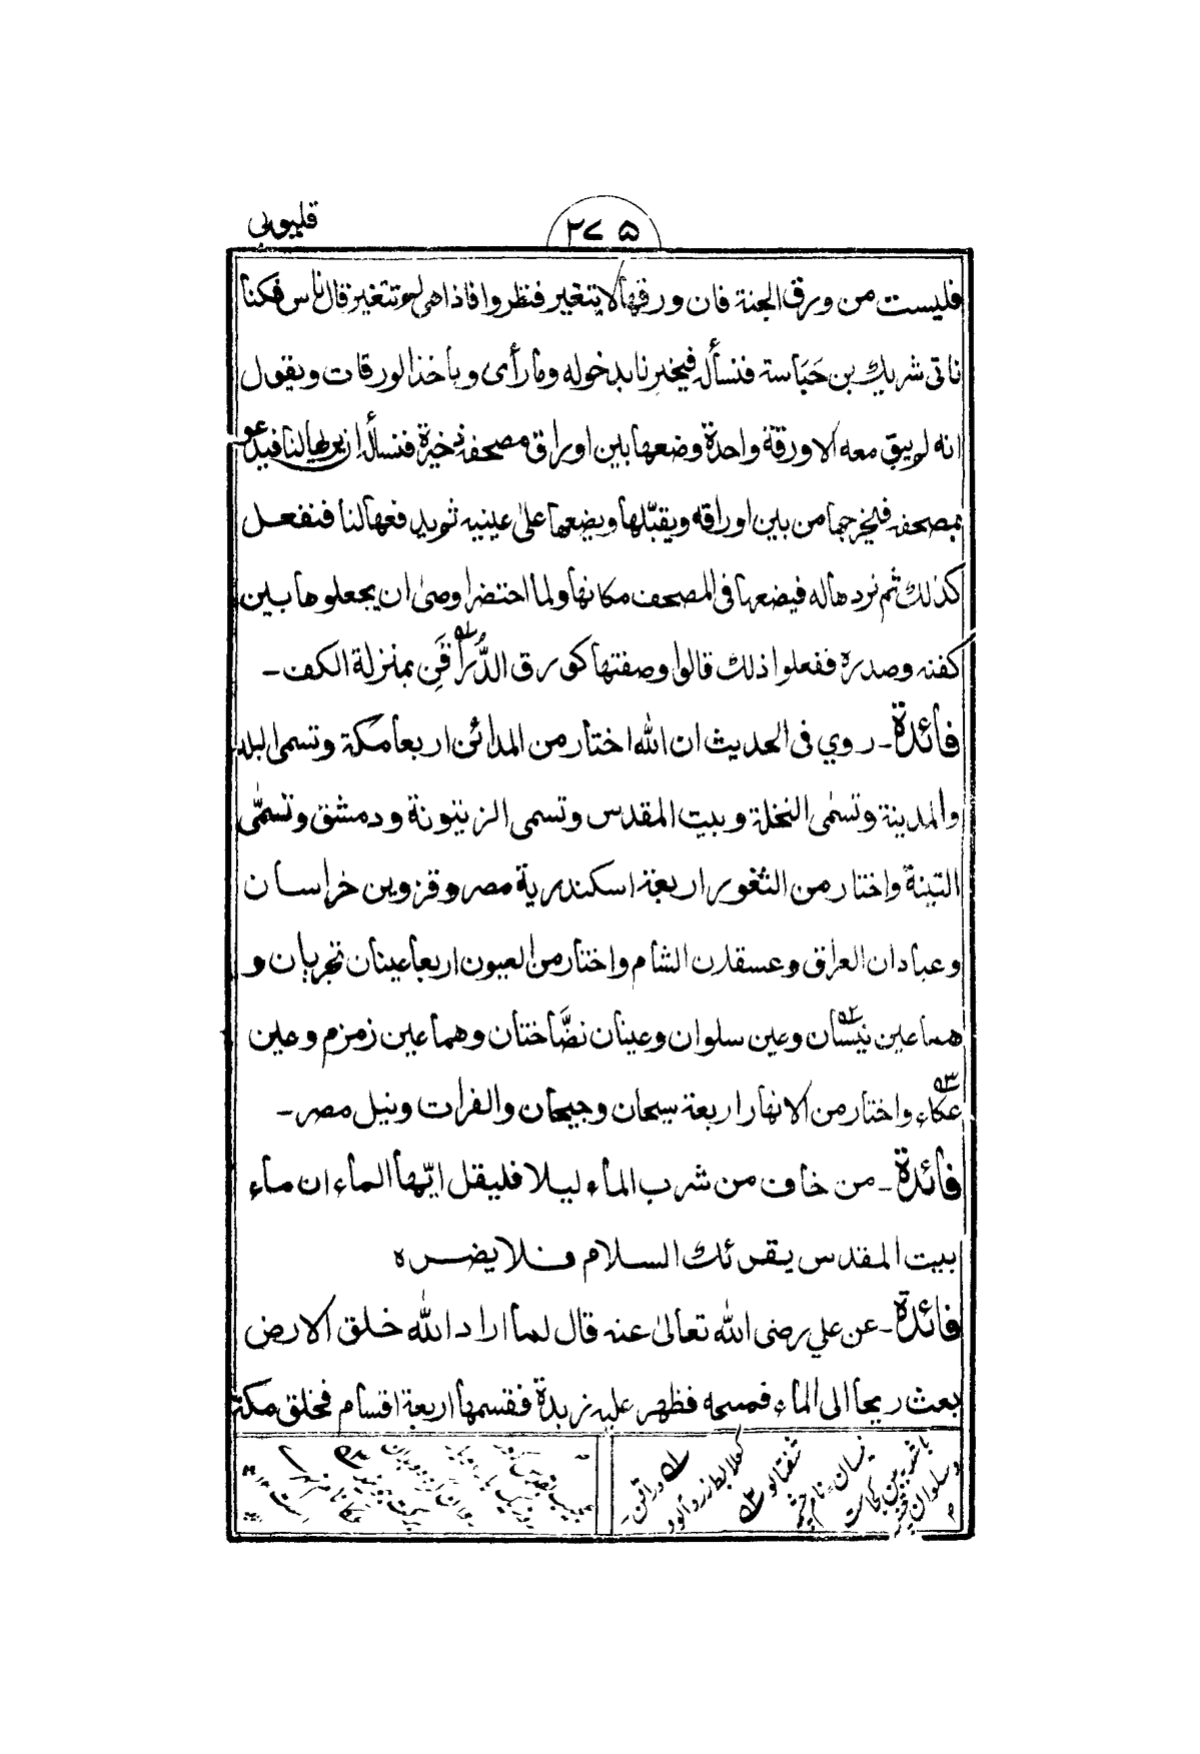 قليوبي
٢٧٥
فليست من ورق الجنة فان ورقها لا يتغير فنظروا فاذا هى لم تتغير قال ناس فكنا
ناتى شريك بن حَبَاسة فنسأله فيخبرنا بدخوله وما رأى وياخذ الورقات ويقول
انه لم يبق معه الا ورقة واحدة وضعها بين اوراق مصحفه ذخيرة فنسأله ان يريها لنا فيدعو
بمصحفه فيخرجها من بين اوراقه ويقبّلها ويضعها على عينيه ثم يدفعها لنا فنفعل
كذلك ثم نردها له فيضعها فى المصحف مكانها ولما احتضر اوصى ان يجعلوها بين
كفنه وصدره ففعلوا ذلك قالوا وصفتها كورق الدُّرَّاقَِن ١ بمنزلة الكف ـ
فائدة ـ روي فى الحديث ان الله اختار من المدائن اربعا مكة وتسمى البلد
والمدينة وتسمٰى النخلة وبيت المقدس وتسمى الزيتونة ودمشق وتسمّٰى
التينة واختار من الثغور اربعة اسكندرية مصر وقزوين خراسان
وعبادان العراق وعسقلان الشام واختار من العيون اربعا عينان تجريان و
هما عين نيسان ٢ وعين سلوان وعينان نضَّاختان وهما عين زمزم وعين
عكاء ٣ واختار من الانهار اربعة سيحان وجيحان والفرات ونيل مصر ـ
فائدة ـ من خاف من شرب الماء ليلا فليقل ايّها الماء ان ماء
بيت المقدس يقرئك السلام فلا يضره
فائدة ـ عن علي رضى الله تعالىٰ عنه قال لما اراد الله خلق الارض
بعث ريحا الى الماء فمسحه فظهر عليه زبدة فقسمها اربعة اقسام فخلق مكة
١ دراقن ـ
شفتالو ٢
نيسان نام چشمه